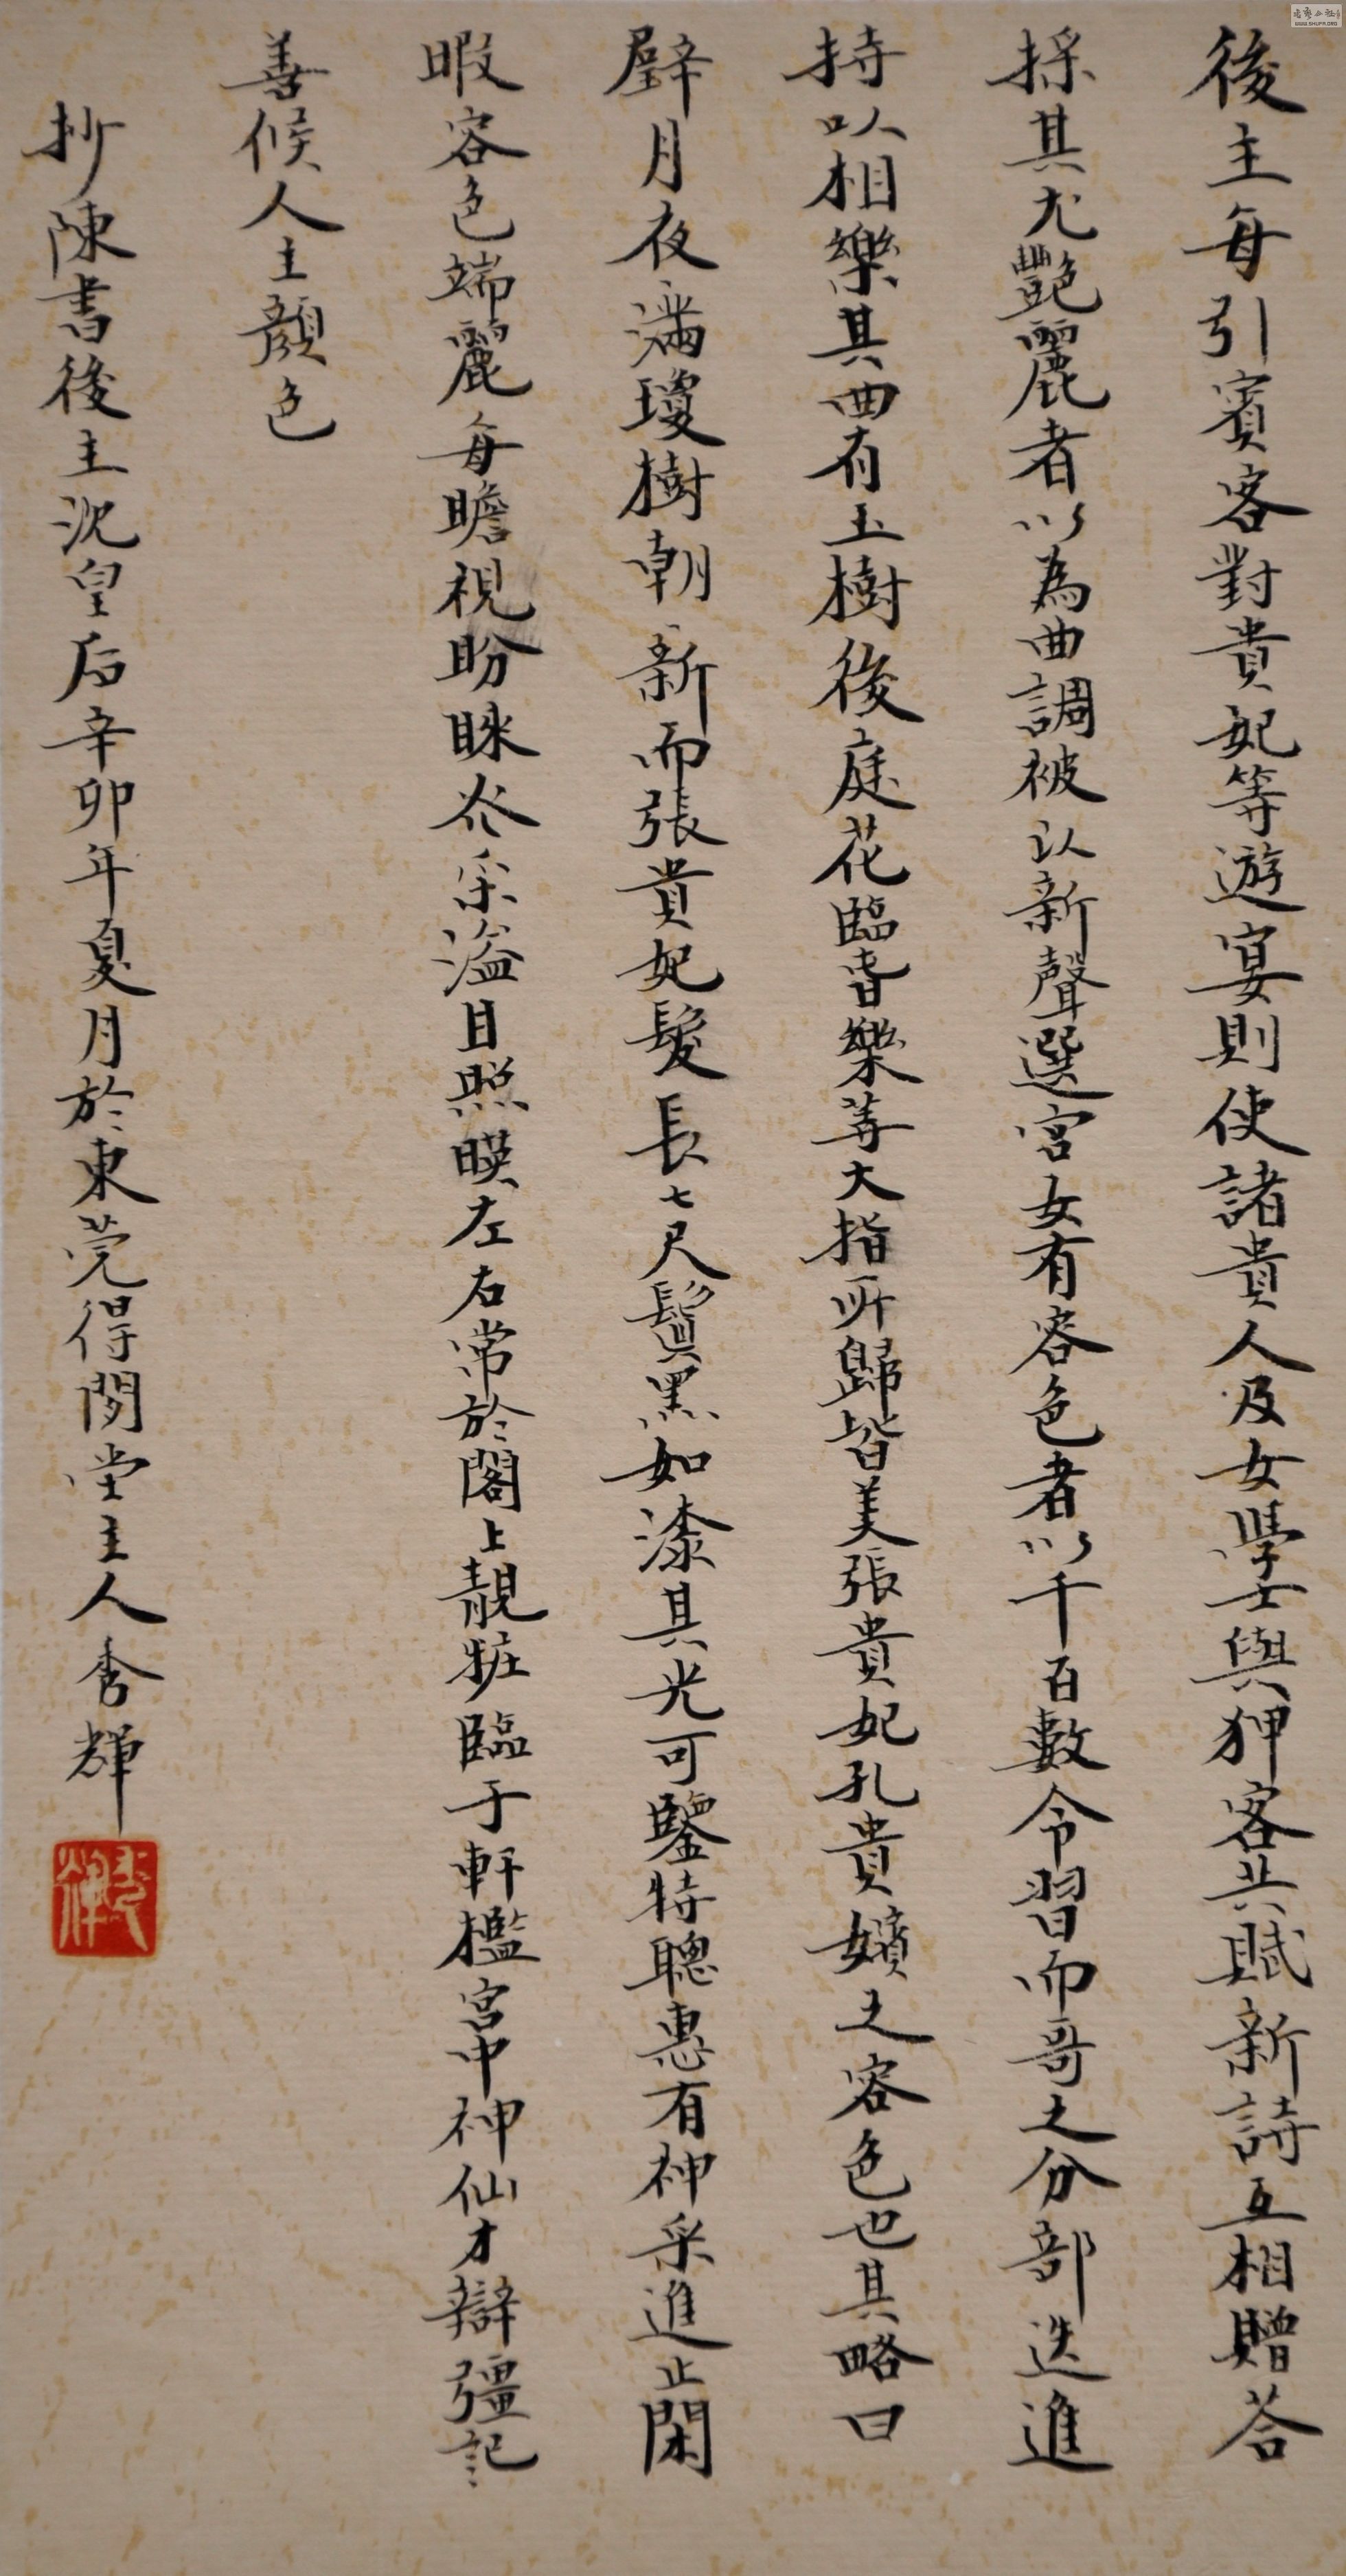 後主每引賓客對貴妃等遊宴則使諸貴人及女學士與狎客共賦新詩互相贈荅
採其尤艷麗者以為曲調被以新聲選宮女有容色者以千百數令習而哥之分部迭進
持以相樂其曲有玉樹後庭花臨春樂等大指所歸皆美張貴妃孔貴嬪之容色也其略曰
璧月夜滿瓊樹朝新而張貴妃髮長七尺鬒黑如漆其光可鑒特聰惠有神采進止閑
暇容色端麗每瞻視盼睞光采溢目照暎左右常於閣上靚粧臨于軒檻宮中神仙才辯彊記
善候人主顏色
抄陳書後主沈皇后辛卯年夏月於東莞得閑堂主人秀輝
WWW.SHUFA.ORG